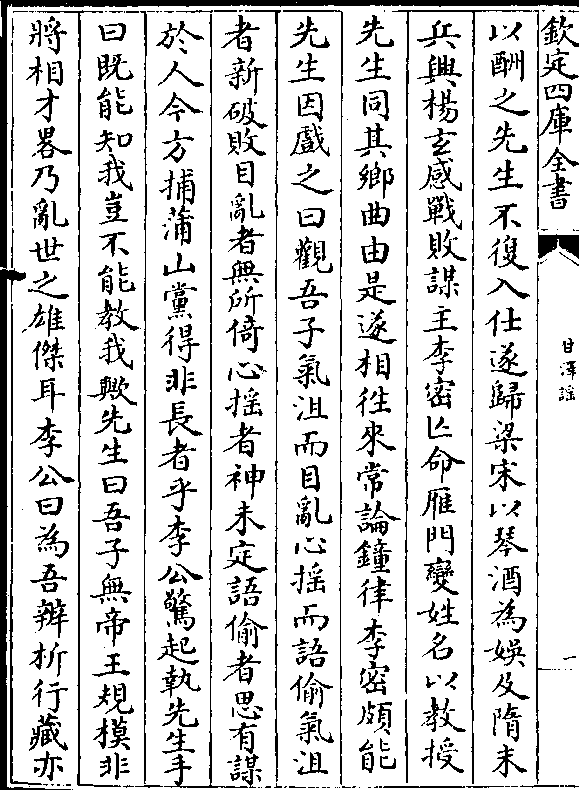 欽定四庫全書
甘澤謠
一
以酬之先生不復入仕遂歸梁宋以琴酒為娛及隋末
兵興楊玄感戰敗謀主李密亡命雁門變姓名以教授
先生同其鄉曲由是遂相徃來常論鐘律李密頗能
先生因戲之曰觀吾子氣沮而目亂心揺而語偷氣沮
者新破敗目亂者無所倚心揺者神未定語偷者思有謀
於人今方捕蒲山黨得非長者乎李公驚起執先生手
曰既能知我豈不能教我歟先生曰吾子無帝王規模非
將相才畧乃亂世之雄傑耳李公曰為吾辨析行藏亦